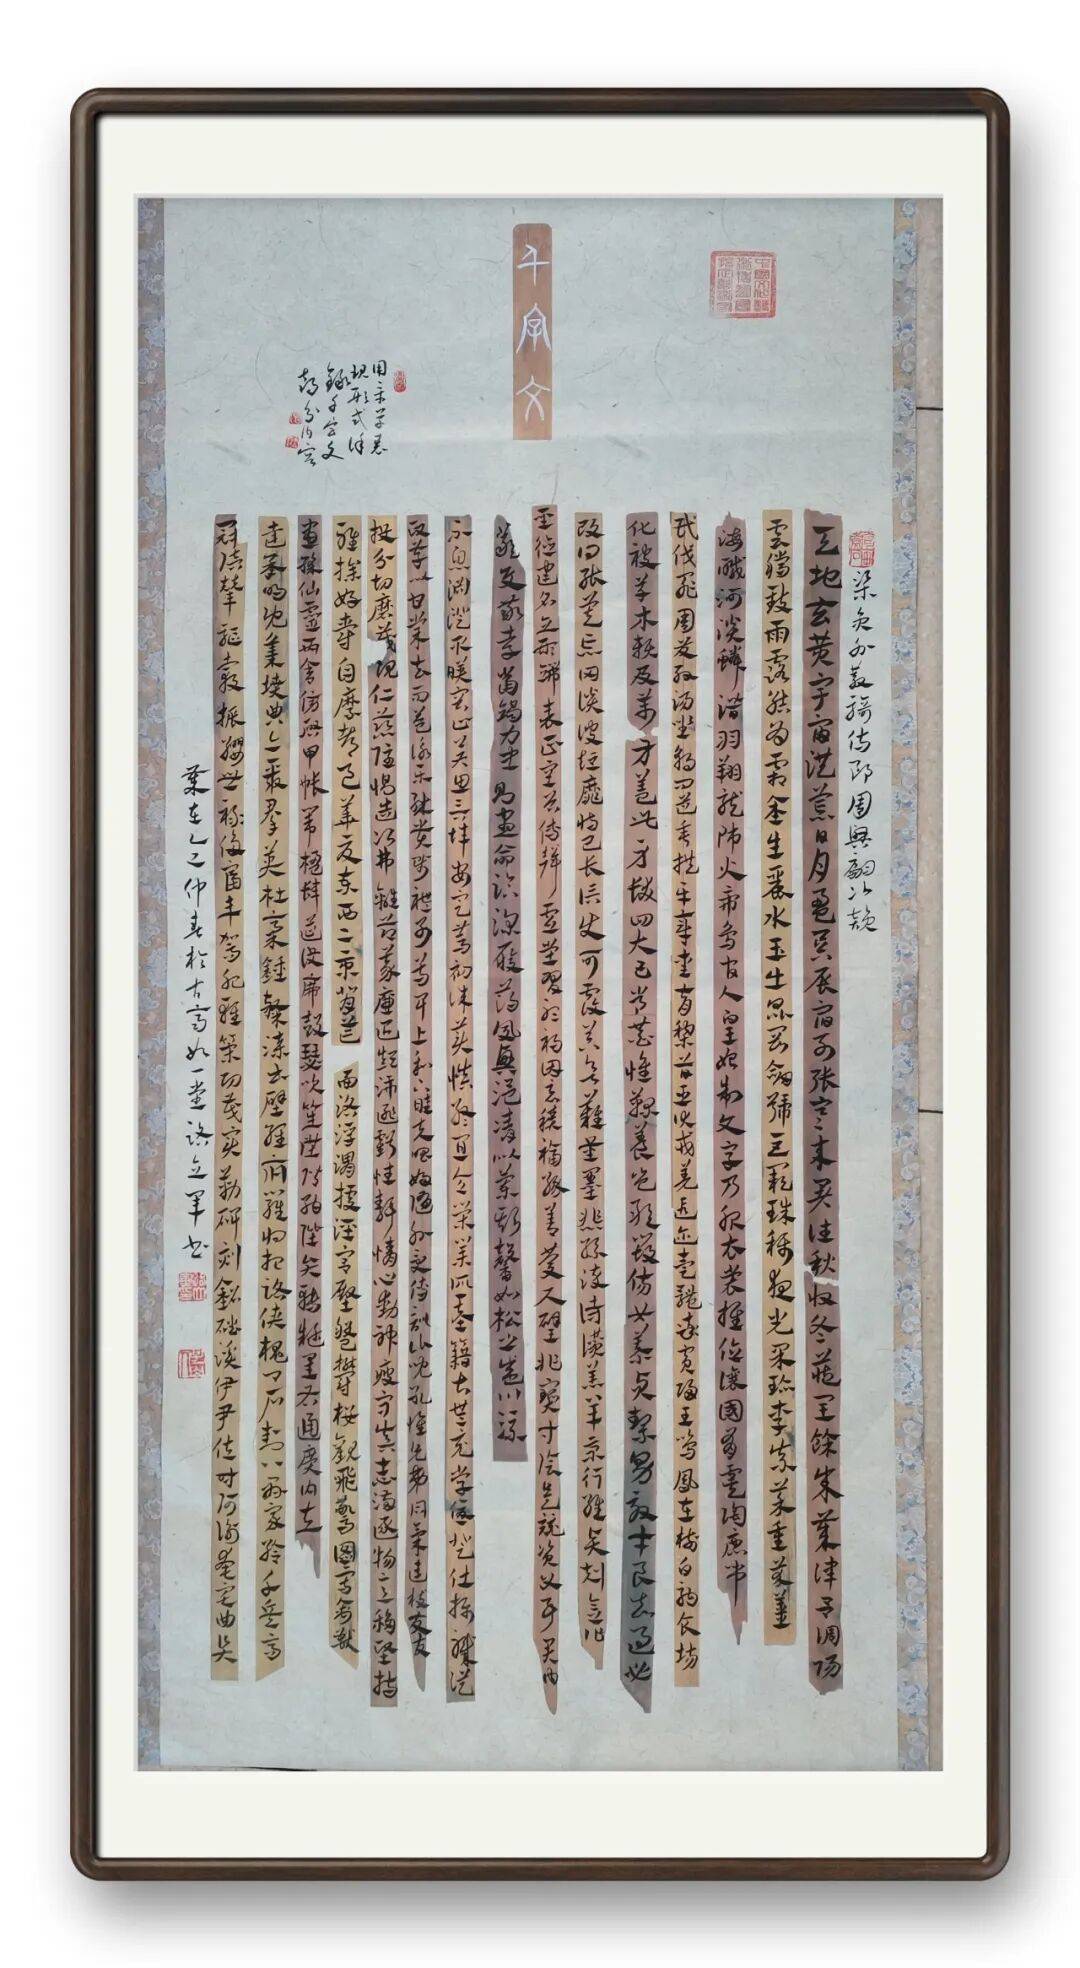 千字文
用章草表
現形式
錄千字文
部分內容
梁員外散騎侍郎周興嗣次韻
天地玄黃宇宙洪荒日月盈昃辰宿列張寒來暑往秋收冬藏閏餘成歲律呂調陽
雲騰致雨露結為霜金生麗水玉出崑岡劍號巨闕珠稱夜光果珍李柰菜重芥薑
海鹹河淡鱗潛羽翔龍師火帝鳥官人皇始制文字乃服衣裳推位讓國有虞陶唐弔
民伐罪周發殷湯坐朝問道垂拱平章愛育黎首臣伏戎羌遐邇壹體率賓歸王鳴鳳在樹白駒食場
化被草木賴及萬方蓋此身髮四大五常恭惟鞠養豈敢毀傷女慕貞絜男效才良知過必
改得能莫忘罔談彼短靡恃己長信使可覆器欲難量墨悲絲染詩讚羔羊景行維賢剋念作
聖德建名立形端表正空谷傳聲虛堂習聽禍因惡積福緣善慶尺璧非寶寸陰是競資父事君曰
嚴與敬孝當竭力忠則盡命臨深履薄夙興溫凊似蘭斯馨如松之盛川流
不息淵澄取映容止若思言辭安定篤初誠美慎終宜令榮業所基籍甚無竟學優登仕攝職從
政存以甘棠去而益詠樂殊貴賤禮別尊卑上和下睦夫唱婦隨外受傅訓入比兒孔懷兄弟同氣連枝交友
投分切磨箴規仁慈隱惻造次弗離節義廉退顛沛匪虧性靜情逸心動神疲守真志滿逐物意移堅持
雅操好爵自縻都邑華夏東西二京背邙面洛浮渭據涇宮殿盤鬱樓觀飛驚圖寫禽獸
畫綵仙靈丙舍傍啟甲帳對楹肆筵設席鼓瑟吹笙陞階納陛弁轉疑星右通廣內左
達承明既集墳典亦聚群英杜稾鍾隸漆書壁經府羅將相路俠槐卿戶封八縣家給千兵高
冠陪輦驅轂振纓世祿侈富車駕肥輕策功茂實勒碑刻銘磻溪伊尹佐時阿衡奄宅曲阜
歲在乙巳仲春於古高如一堂路立軍書